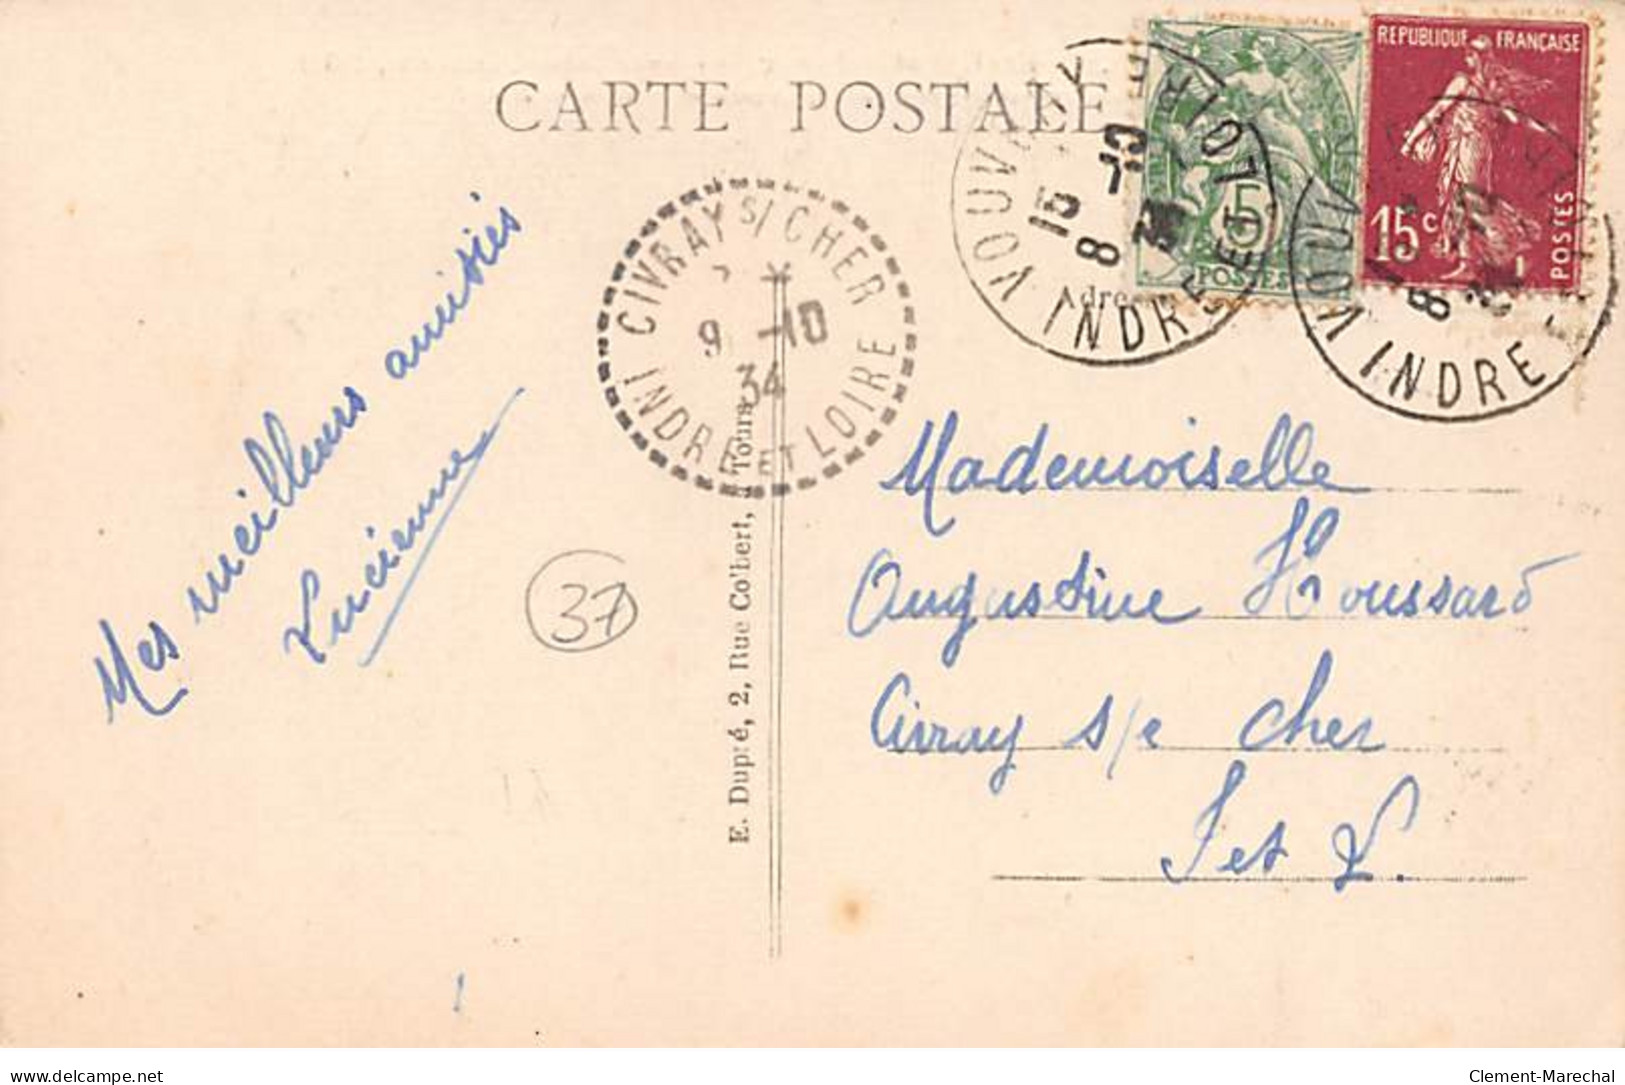 CARTE POSTALE
REPUBLIQUE FRANÇAISE
15c
POSTES
5
POSTES
VOUVRAY
INDRE ET LOIRE
15
8 -10
34
VOUVRAY
INDRE
8
CIVRAY S/ CHER
9 -10
34
INDRE ET LOIRE
Adre
Mes meilleurs amitiés
Lucienne
37
E. Dupré, 2, Rue Colbert, Tours
Mademoiselle
Augustine Houssard
Civray s/e Cher
I et L.
delcampe.net
Clement-Marechal